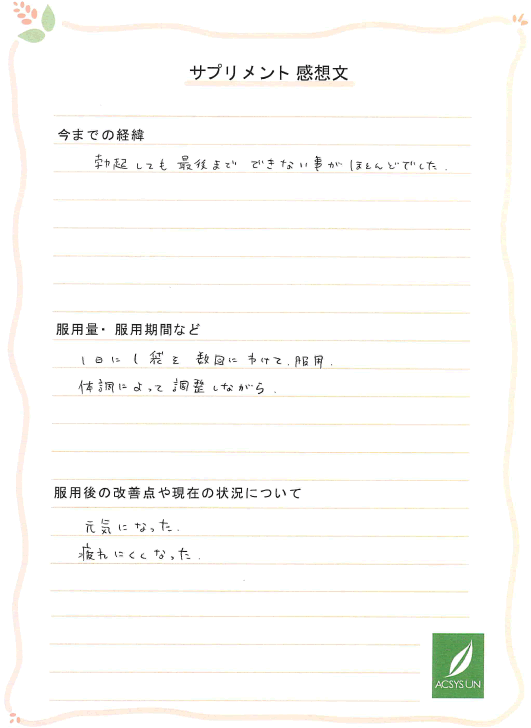 サプリメント 感想文
今までの経緯
勃起しても 最後まで できない事が ほとんどでした.
服用量・服用期間など
1日に 1袋を 数回に わけて、服用.
体調によって 調整しながら.
服用後の改善点や現在の状況について
元気に なった.
疲れにくく なった.
ACSYSUN